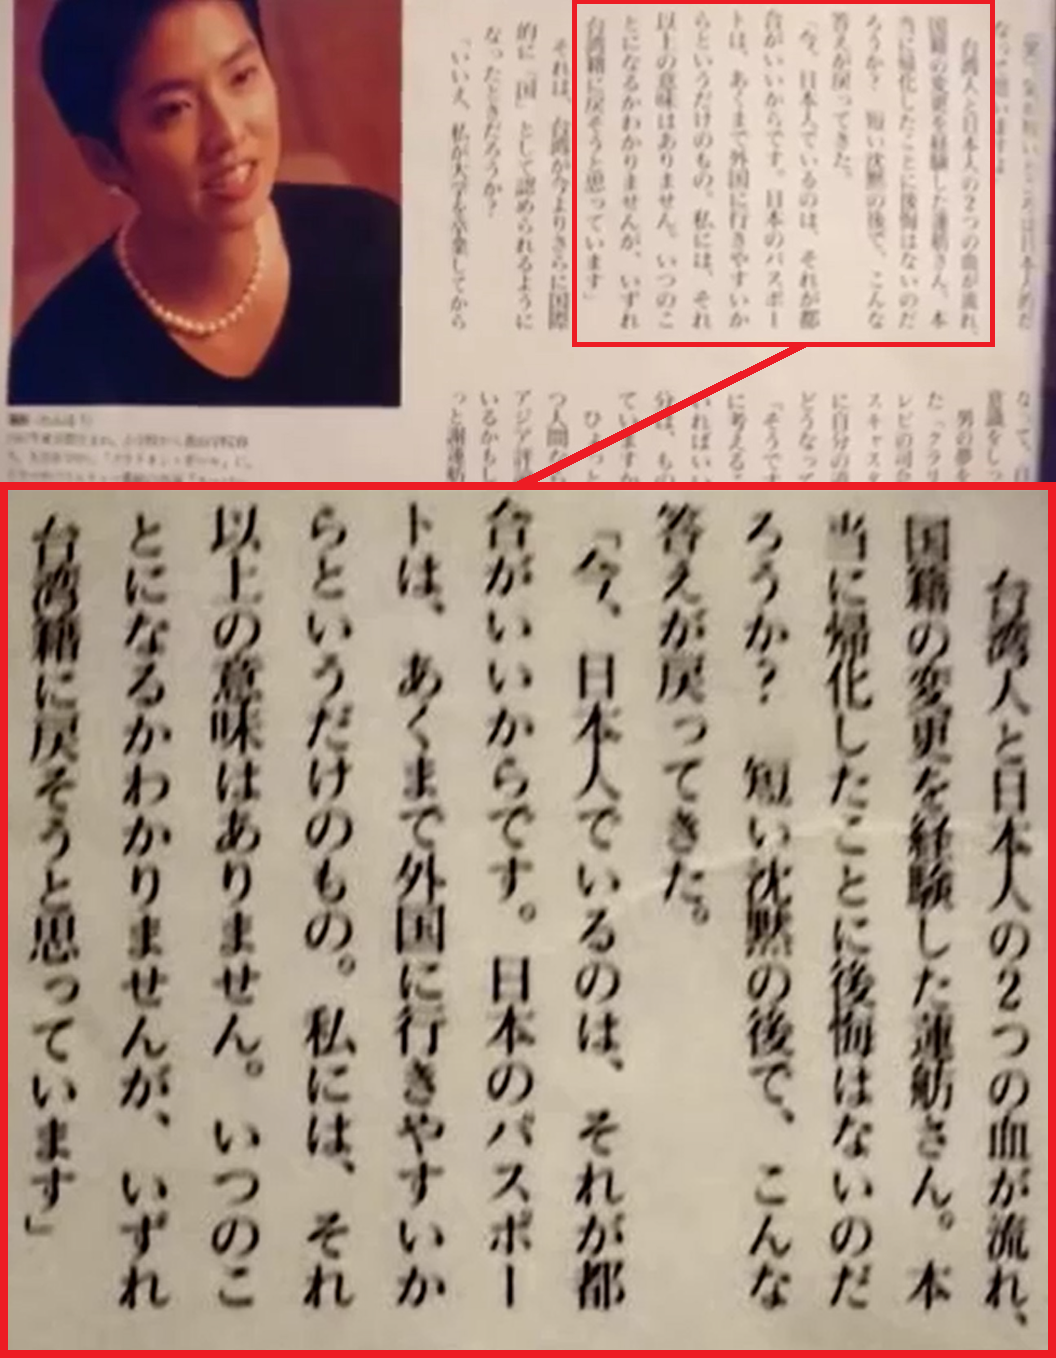 台湾人と日本人の2つの血が流れ、
国籍の変更を経験した蓮舫さん。本
当に帰化したことに後悔はないのだ
ろうか? 短い沈黙の後で、こんな
答えが戻ってきた。
「今、日本人でいるのは、それが都
合がいいからです。日本のパスポー
トは、あくまで外国に行きやすいか
らというだけのもの。私には、それ
以上の意味はありません。いつのこ
とになるかわかりませんが、いずれ
台湾籍に戻そうと思っています」
それは、台湾が今よりさらに国際
的に「国」として認められるように
なったときだろうか?
「いいえ、私が大学を卒業してから
なって、
意識をしっ
男の夢を
た「クラリ
レビの司
スキャスタ
に自分の道
どうなって
「そうです
に考える
いればいい
分は、もの
ていますか
ひょっと
つ人間なら
アジア評
いるかもし
っと謝蓮舫
台湾人と日本人の2つの血が流れ、
国籍の変更を経験した蓮舫さん。本
当に帰化したことに後悔はないのだ
ろうか? 短い沈黙の後で、こんな
答えが戻ってきた。
「今、日本人でいるのは、それが都
合がいいからです。日本のパスポー
トは、あくまで外国に行きやすいか
らというだけのもの。私には、それ
以上の意味はありません。いつのこ
とになるかわかりませんが、いずれ
台湾籍に戻そうと思っています」